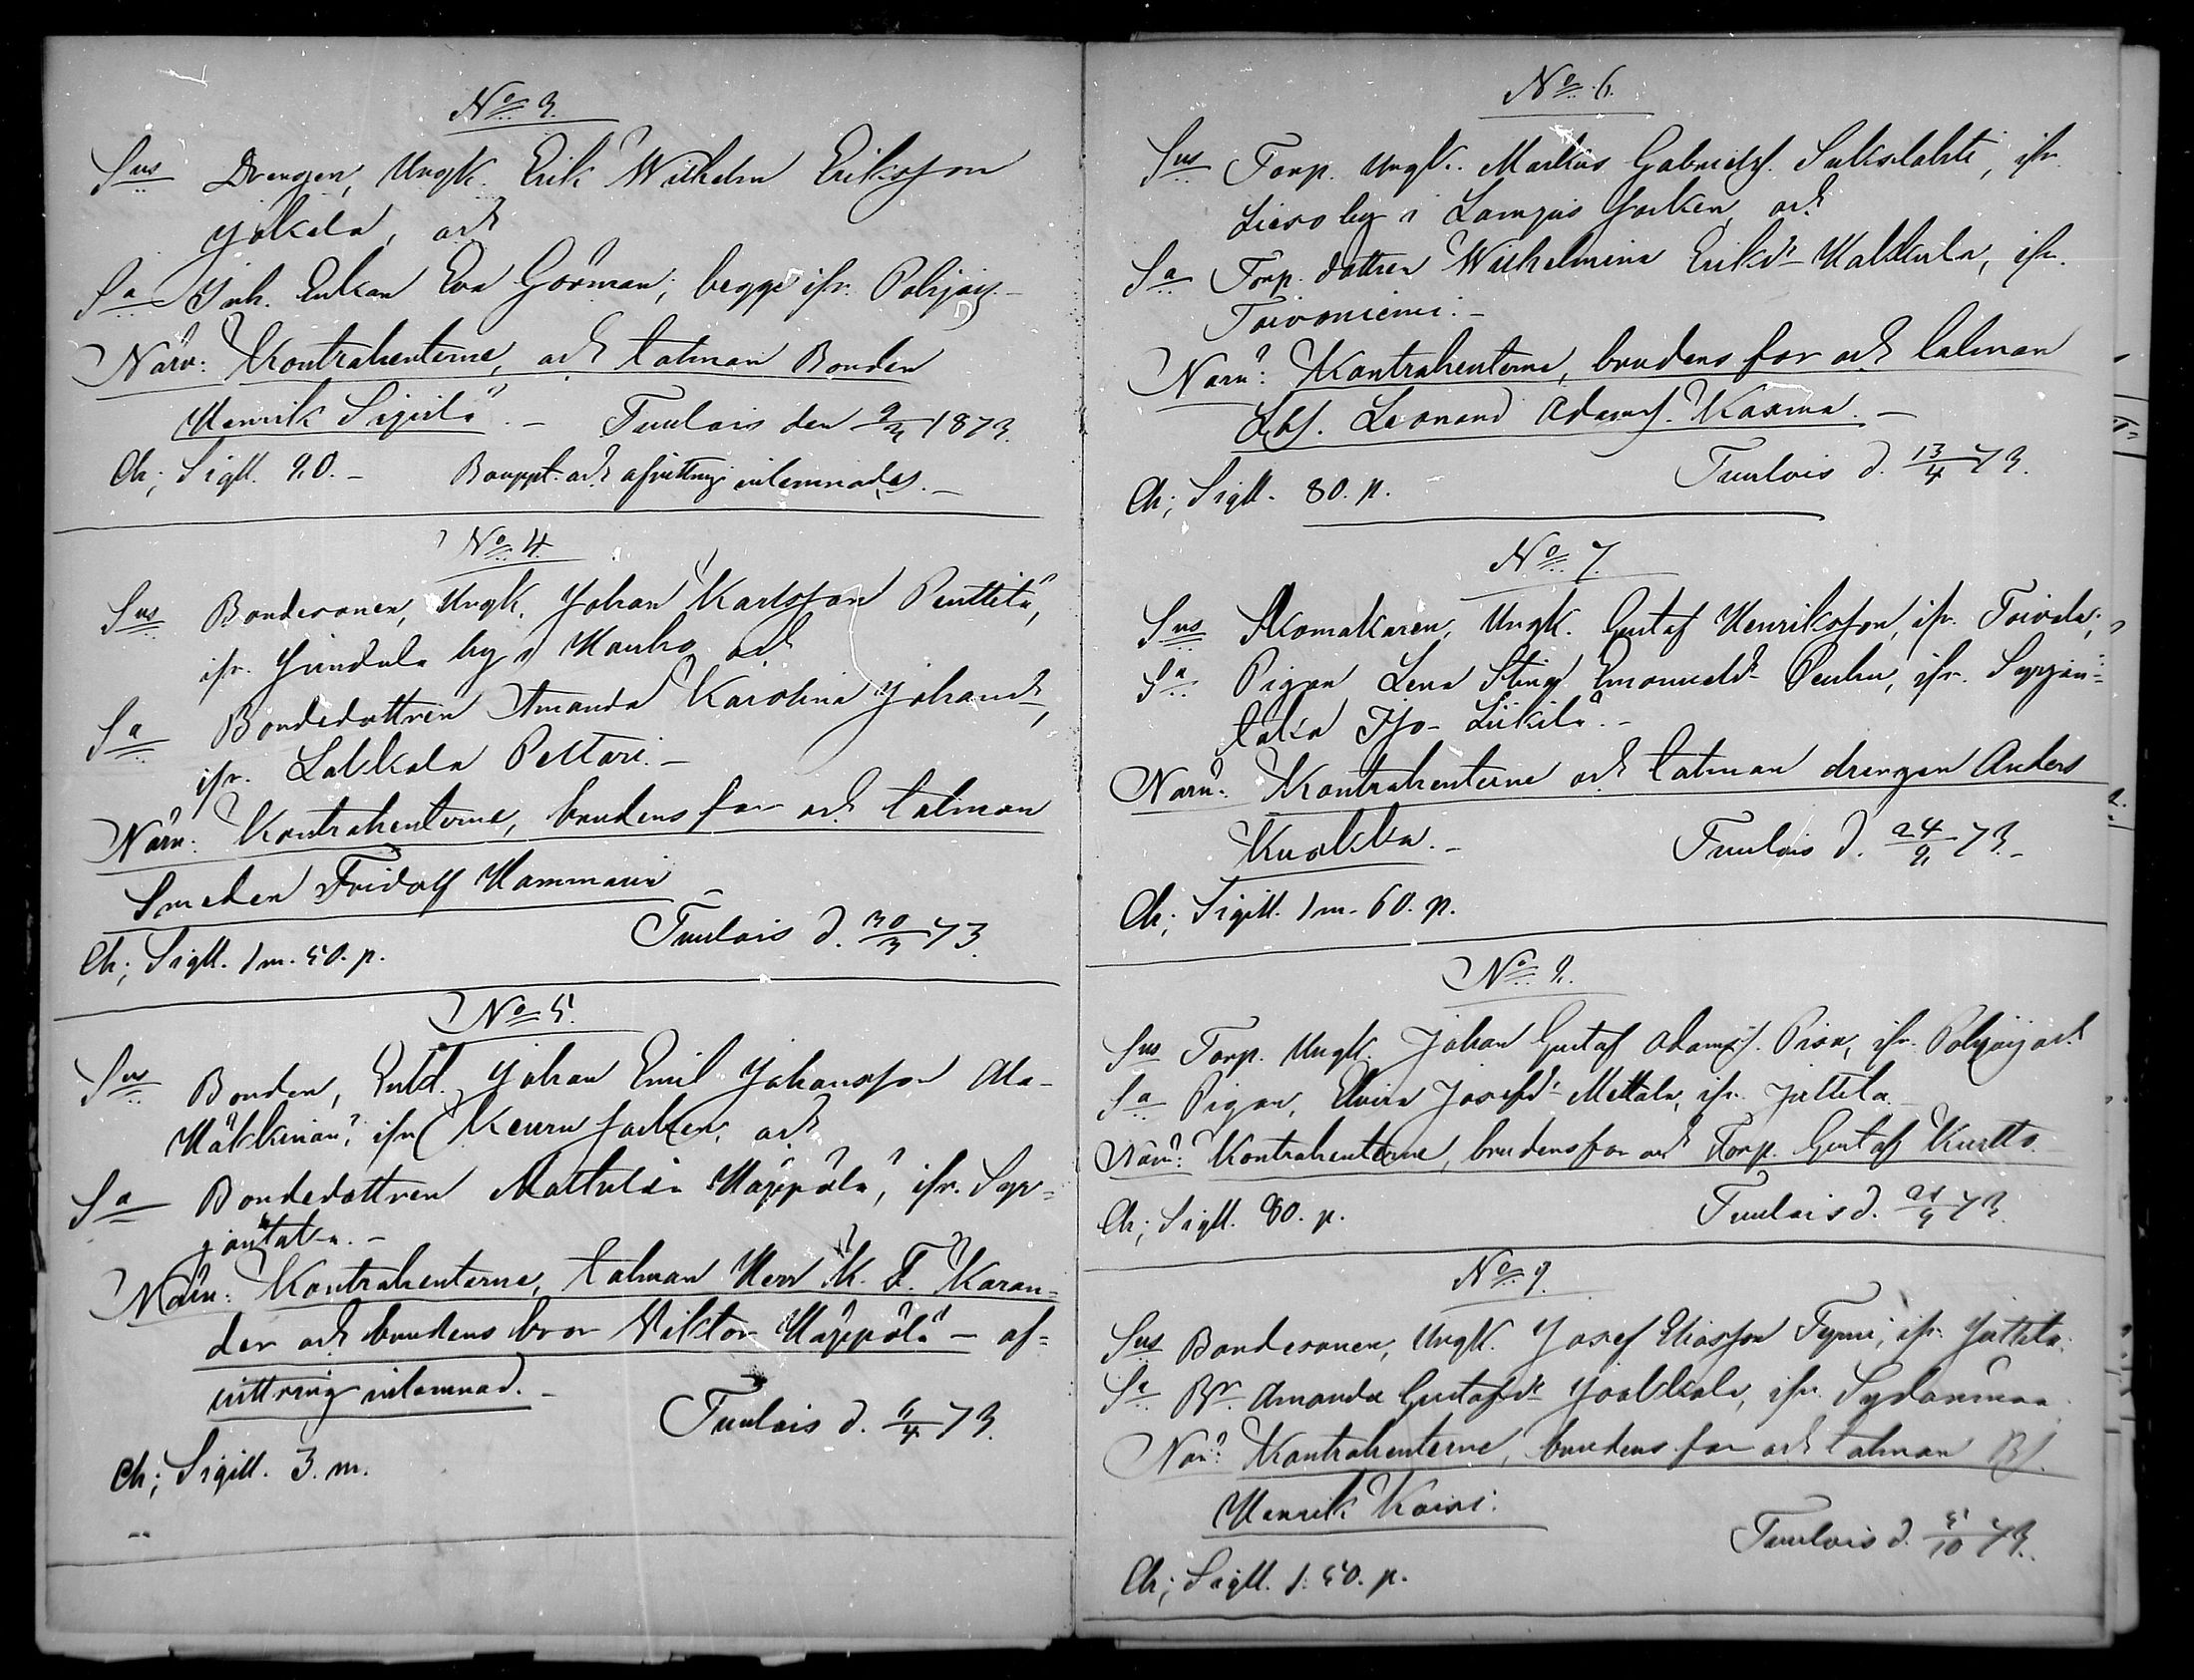 No 3.
Sus Drengen, Ungk. Erik Wilhelm Eriksson
Jokela, och
Sa Inh. Enkan Eva Görman; begge ifr. Pohjois.-
Närv: Kontrahenterne, och talman Bonden
Henrik Sipilä.- Tuulois den 9/3 1873.
Ch; Sigll. 80.- Bouppt. och afvittring inlemnades.-
No 4.
Sus Bondesonen, Ungk. Johan Karlsson Penttilä,
ifr. by i Hauho och
Sa Bondedottren Amanda Karolina Johansdr,
ifr. Lakkala Pettari.-
Närv: Kontrahenterne, brudens far och talman
Smeden Fridolf Hammarin -
Ch; Sigll. 1 m. 50. p. Tuulois d. 30/3 73.
No 5.
Sus Bonden, Enkl. Johan Emil Johansson Ala-
ifrn Keuru socken, och
Sa Bondedottren Mathilda Häppölä, ifr. Syr=
jäntaka.-
Närv: Kontrahenterne, talman Herr K. F. Karan=
der och brudens bror Viktor Häppölä - af=
vittring inlemnad.-
Tuulois d. 6/4 73.
Ch; Sigill. 3. m.
No 6.
Sus Torp. Ungk. Markus Gabrielss. Sukslahti, ifr.
Lieso by i Lampis socken, och
Sa Torp. dottren Wilhelmina Eriksdr Uakkula, ifr.
Toivoniemi.-
Närv: Kontrahenterne, brudens far och talman
Lbf. Leonard Adamss. Kaxma.-
Tuulois d. 13/4 73.
Ch; Sigll. 80. p.
No 7.
Sus Skomakaren, Ungk. Gustaf Henriksson, ifr. Toivola;
Sa Pigan Lena Stina Emanuelsdr ifr. Syrjän=
taka Iso-Liikilä.-
Närv: Kontrahenterne och talman drengen Anders
Kuokka.- Tuulois d. 24/8 73.-
Ch; Sigill. 1 m. 60. p.
No 8.
Sus Torp. Ungk. Johan Gustaf Adamss. Pisa, ifr. Pohjois och
Sa Pigan, Elvira Josefsdr Mattala, ifr. Juttila.-
Närv: Kontrahenterne, brudens far och Torp. Gustaf Kurtto.
Ch; Sigll. 80. p. Tuulois d. 21/9 73.
No 9.
Sus Bondesonen, Ungk. Josef Eliasson Tyrni, ifr. Juttila.
Sa Br. Amanda Gustafsdr Jookkala, ifr. Sydänmaa.
Närv: Kontrahenterne, brudens far och talman Bf.
Henrik Koivi.
Tuulois d. 5/10 73.
Ch; Sigll. 1: 50. p.